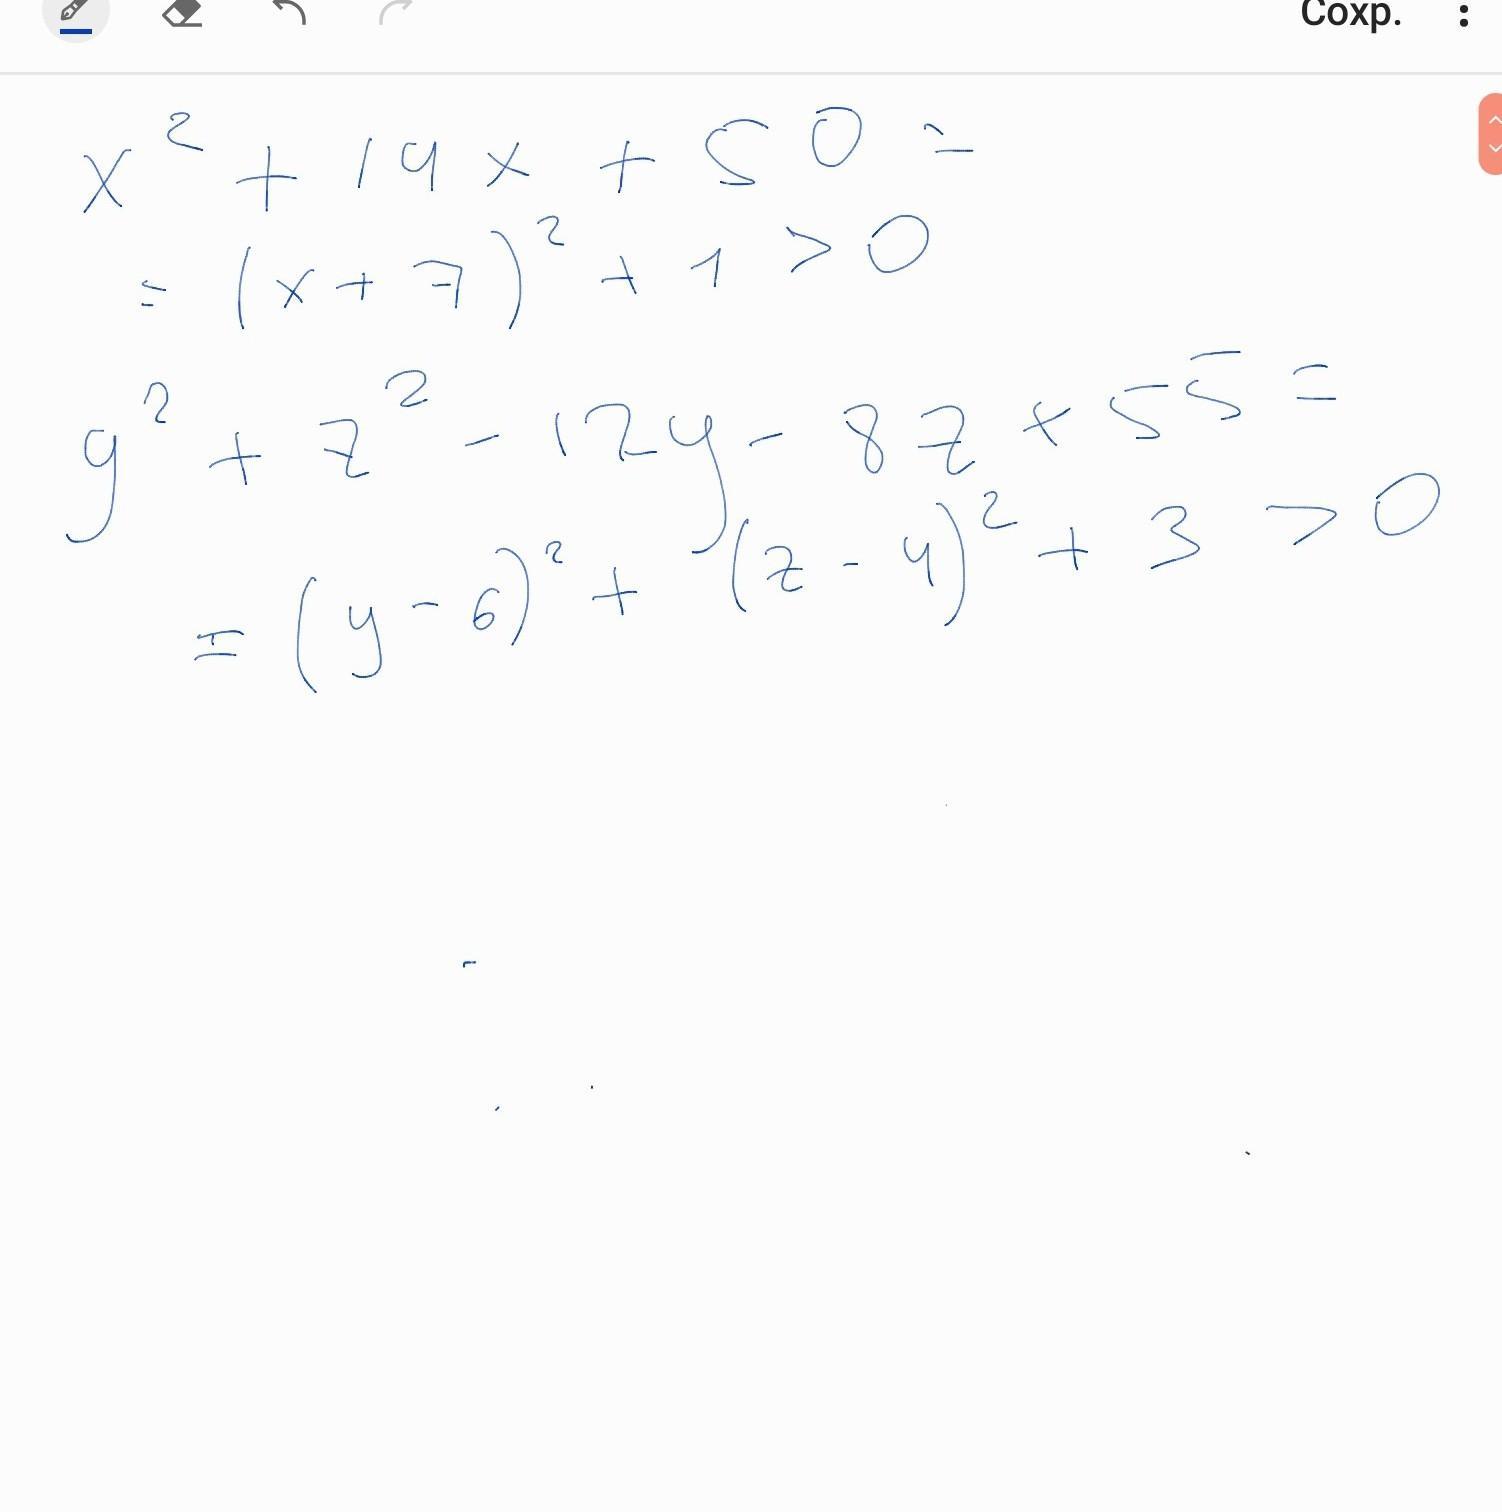 Сохр.
x² + 14x + 50 =
= (x + 7)² + 1 > 0
y² + z² - 12y - 8z + 55 =
= (y - 6)² + (z - 4)² + 3 > 0